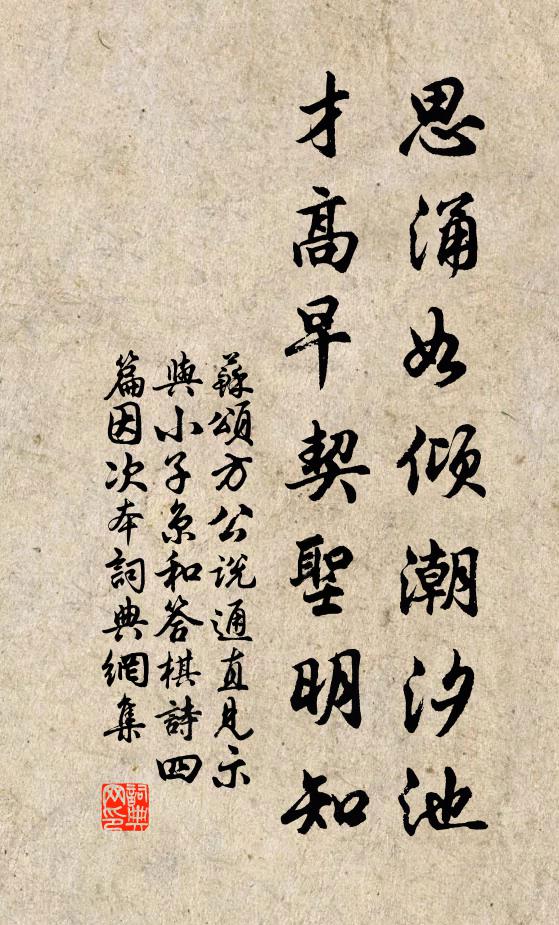 思涌如傾潮汐池
才高早契聖明知
蘇頌方公說通直見示
與小子京和答棋詩四
篇因次本詞典網集
詞典網印